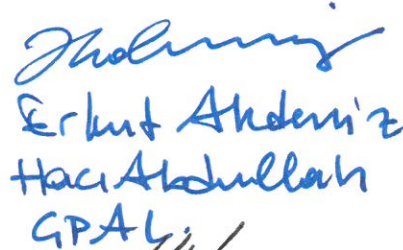 Erkut Akdeniz
Hacı Abdullah
GPAL.